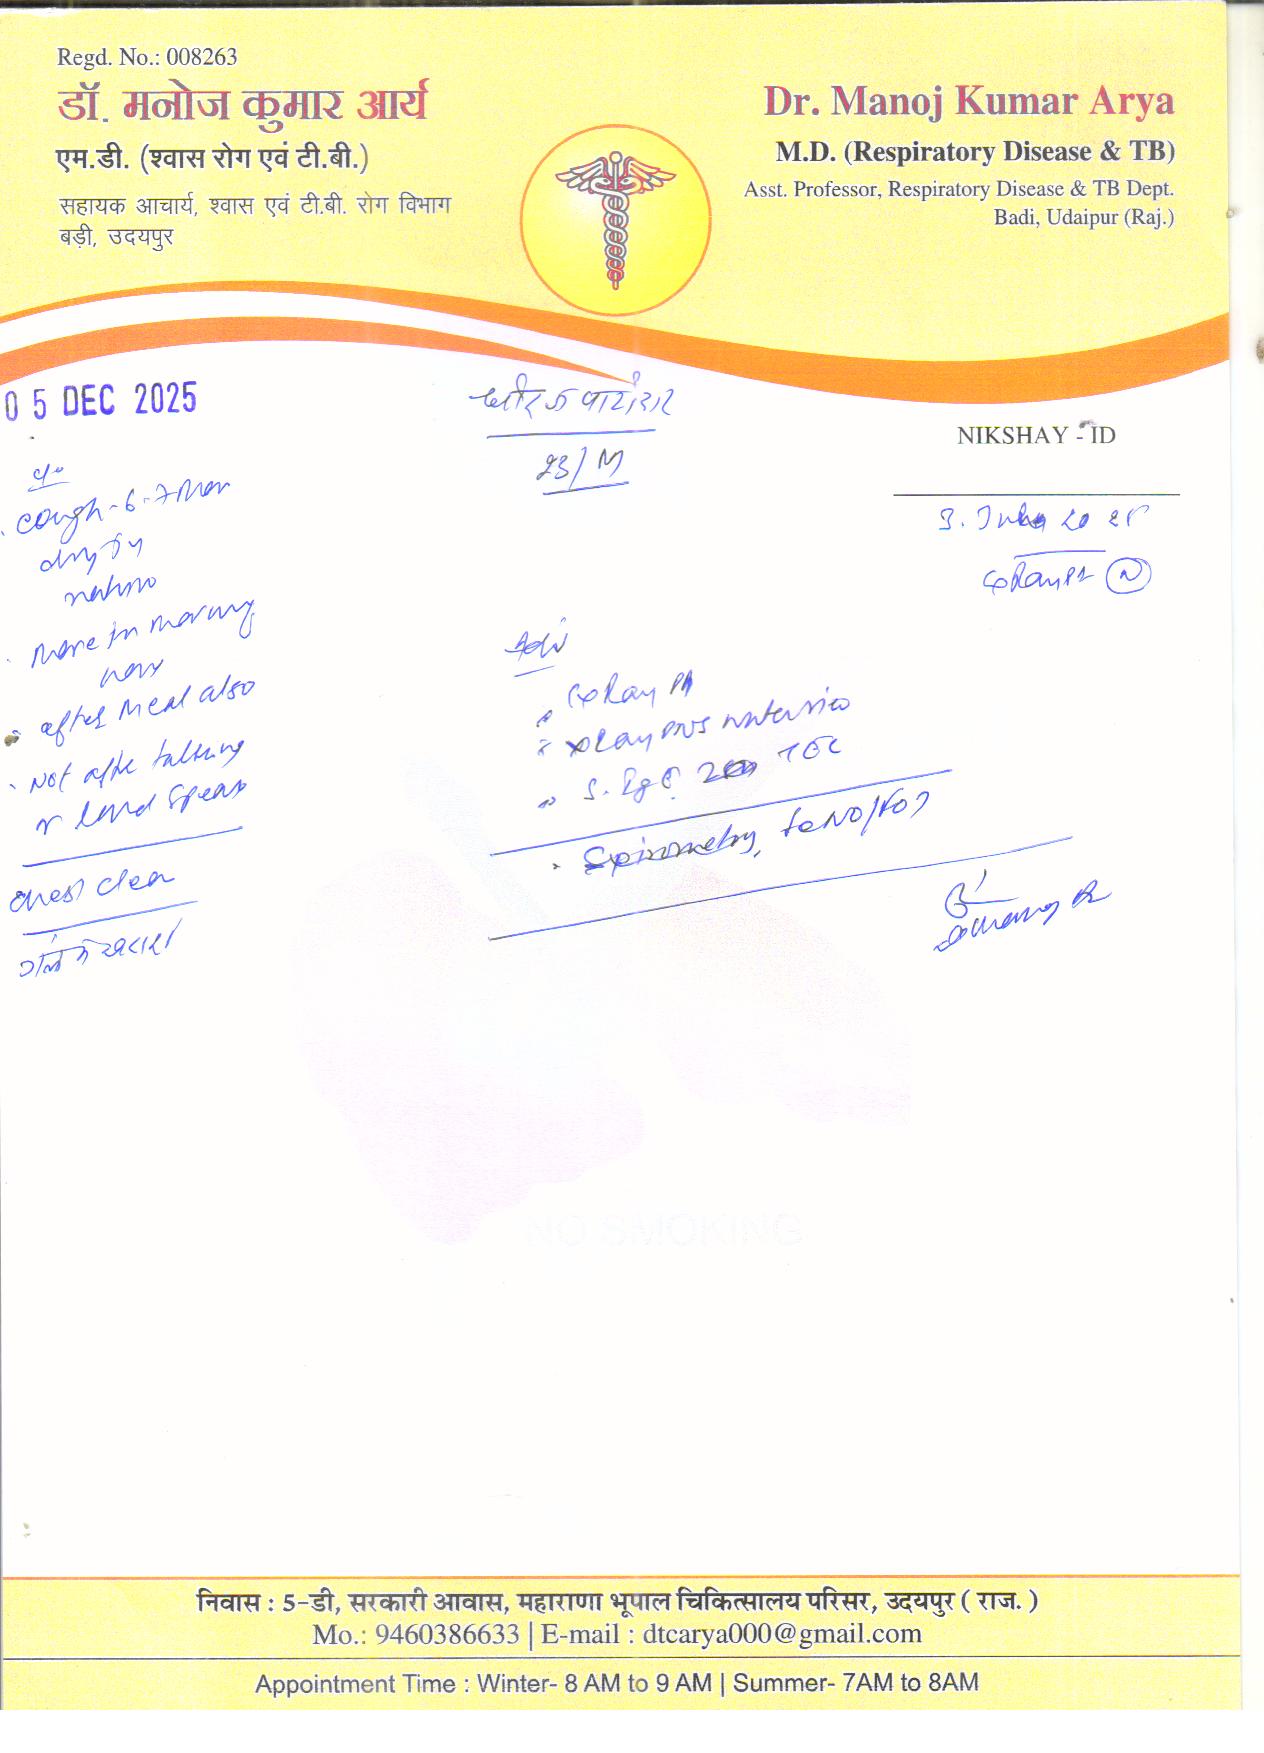 Regd. No.: 008263
डॉ. मनोज कुमार आर्य
एम.डी. (श्वास रोग एवं टी.बी.)
सहायक आचार्य, श्वास एवं टी.बी. रोग विभाग
बड़ी, उदयपुर
Dr. Manoj Kumar Arya
M.D. (Respiratory Disease & TB)
Asst. Professor, Respiratory Disease & TB Dept.
Badi, Udaipur (Raj.)
05 DEC 2025
23/M
NIKSHAY - ID
cough - 6-7
dry
More in morning
after meal also
Not after talking
r loud
chest clear
Adv
X Ray PA
S. IgE TEC
Spirometry, FeNO/FOT
NO SMOKING
निवास : 5-डी, सरकारी आवास, महाराणा भूपाल चिकित्सालय परिसर, उदयपुर ( राज. )
Mo.: 9460386633 | E-mail : dtcarya000@gmail.com
Appointment Time : Winter- 8 AM to 9 AM | Summer- 7AM to 8AM